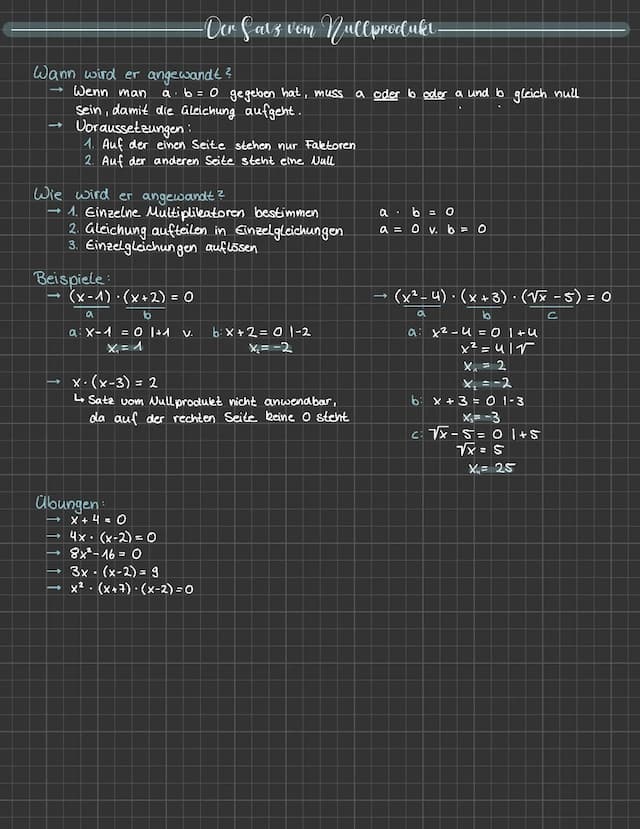 Der Satz vom Nullprodukt
Wann wird er angewandt?
→ Wenn man a · b = 0 gegeben hat, muss a oder b oder a und b gleich null
sein, damit die Gleichung aufgeht.
→ Voraussetzungen:
1. Auf der einen Seite stehen nur Faktoren
2. Auf der anderen Seite steht eine Null
Wie wird er angewandt?
→ 1. Einzelne Multiplikatoren bestimmen
2. Gleichung aufteilen in Einzelgleichungen
3. Einzelgleichungen auflösen
a · b = 0
a = 0 v. b = 0
Beispiele:
→ (x-1) · (x+2) = 0
a b
a: x-1 = 0 |+1 v. b: x+2 = 0 |-2
x₁ = 1 x₂ = -2
→ x · (x-3) = 2
↳ Satz vom Nullprodukt nicht anwendbar,
da auf der rechten Seite keine 0 steht
→ (x²-4) · (x+3) · (√x -5) = 0
a b c
a: x²-4 = 0 |+4
x² = 4 |√
x₁ = 2
x₂ = -2
b: x+3 = 0 |-3
x₃ = -3
c: √x - 5 = 0 |+5
√x = 5
x₄ = 25
Übungen:
→ x+4 = 0
→ 4x · (x-2) = 0
→ 8x²-16 = 0
→ 3x · (x-2) = 9
→ x² · (x+7) · (x-2) = 0